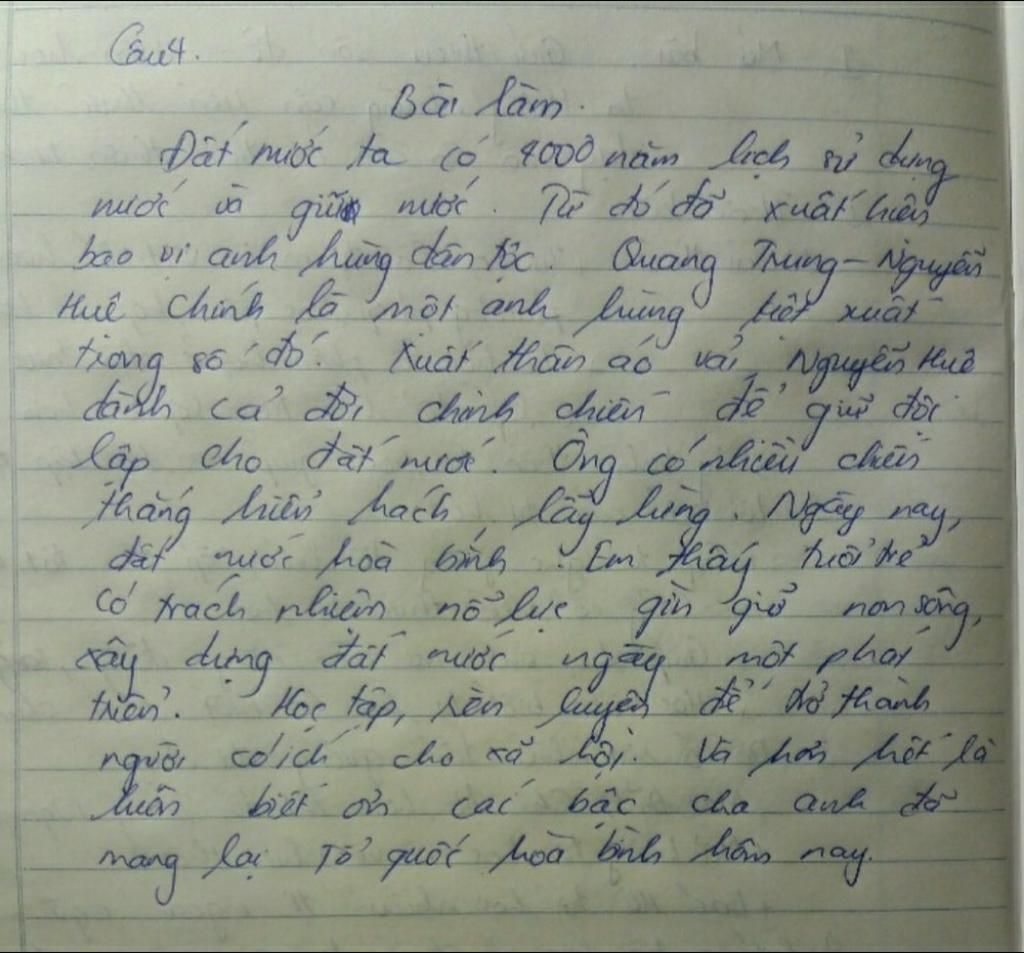 Câu 4.
Bài làm.
Đất nước ta có 4000 năm lịch sử dựng
nước và giữ nước. Từ đó đã xuất hiện
bao vị anh hùng dân tộc. Quang Trung - Nguyễn
Huệ chính là một anh hùng kiệt xuất
trong số đó. Xuất thân áo vải, Nguyễn Huệ
dành cả đời chinh chiến để giữ độc
lập cho đất nước. Ông có nhiều chiến
thắng hiển hách, lẫy lừng. Ngày nay,
đất nước hoà bình. Em thấy tuổi trẻ
có trách nhiệm nổ lực gìn giữ non sông,
xây dựng đất nước ngày một phát
triển. Học tập, rèn luyện để trở thành
người có ích cho xã hội. Và hơn hết là
luôn biết ơn các bậc cha anh đã
mang lại Tổ quốc hoà bình hôm nay.